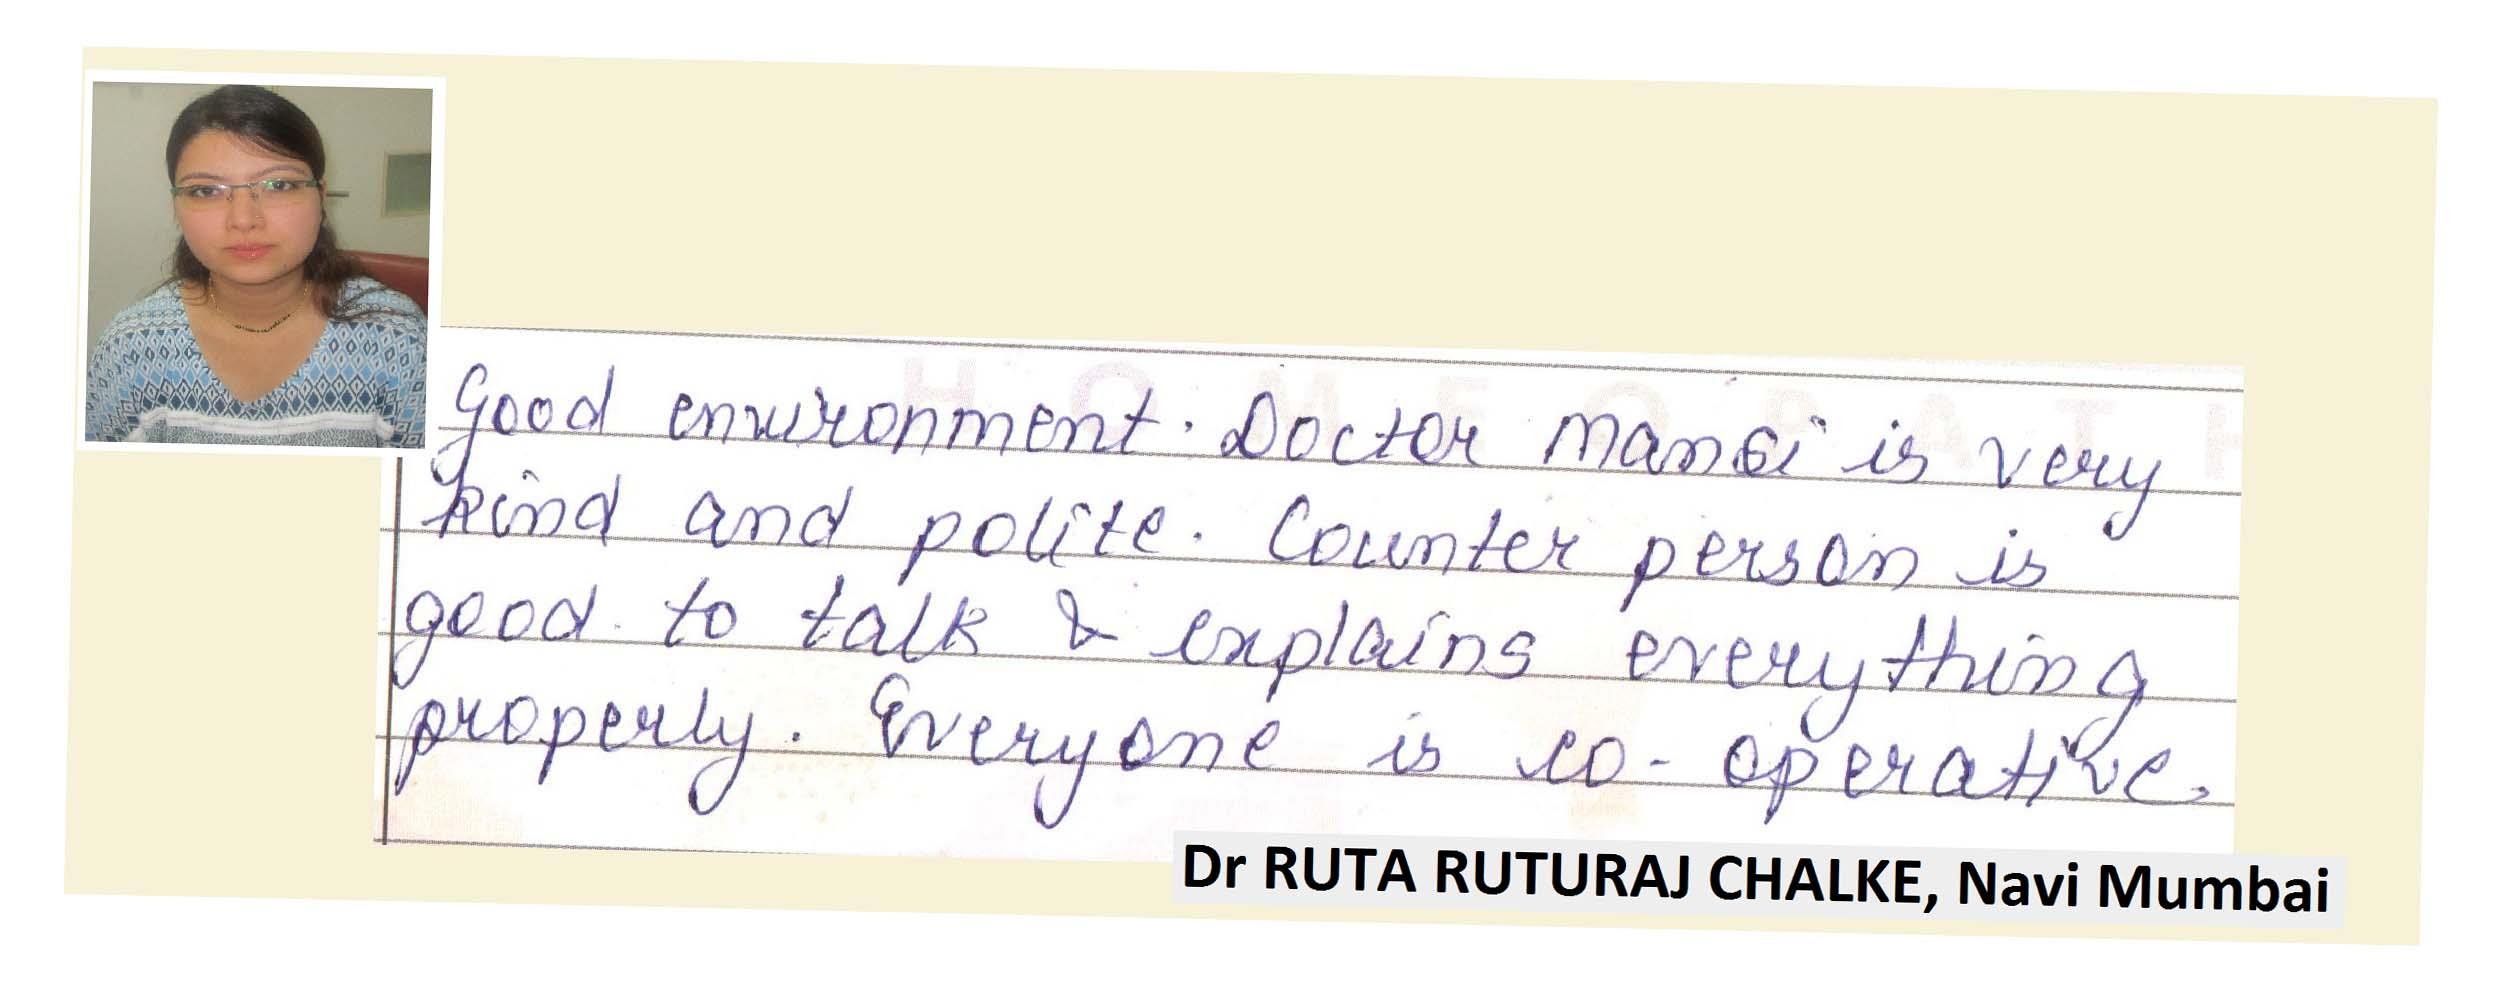 HOMEOPATH
Good environment. Doctor Mansi is very
kind and polite. Counter person is
good to talk & explains everything
properly. Everyone is co-operative.
Dr RUTA RUTURAJ CHALKE, Navi Mumbai